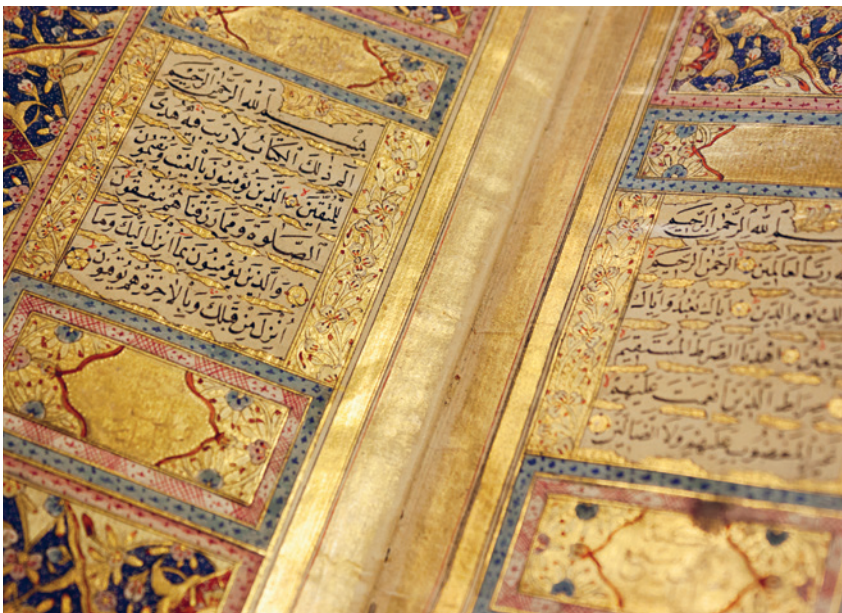 بسم الله الرحمن الرحيم
رب العالمين الرحمن الرحيم
يوم الدين اياك نعبد واياك
اهدنا الصراط المستقيم
صراط الذين انعمت عليهم
غير المغضوب عليهم ولا الضالين
بِسْمِ اللهِ الرَّحْمٰنِ الرَّحِيمِ
الم ذٰلِكَ الْكِتَابُ لَا رَيْبَ فِيهِ هُدًى
لِلْمُتَّقِينَ الَّذِينَ يُؤْمِنُونَ بِالْغَيْبِ وَيُقِيمُونَ
الصَّلٰوةَ وَمِمَّا رَزَقْنَاهُمْ يُنْفِقُونَ
وَالَّذِينَ يُؤْمِنُونَ بِمَا اُنْزِلَ اِلَيْكَ وَمَا
اُنْزِلَ مِنْ قَبْلِكَ وَبِالْاٰخِرَةِ هُمْ يُوقِنُونَ